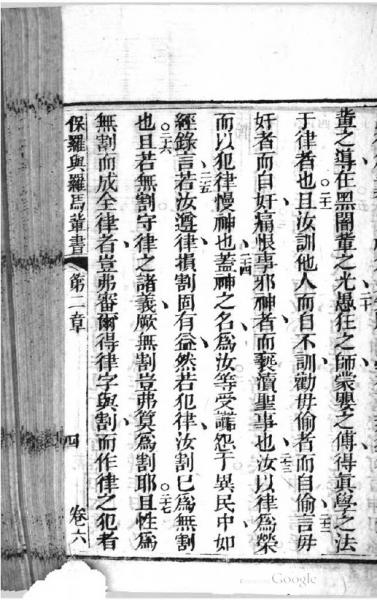 輩之導在黑闇輩之光愚狂之師蒙嬰之傳得真學之法
于律者也且汝訓他人而自不訓勸毋偷者而自偷言毋
二十一
二十二
奸者而自奸痛恨事邪神者而褻瀆聖事也汝以律為榮
二十三
而以犯律慢神也蓋神之名為汝等受謗怨于異民中如
二十四
經錄言若汝遵律損割固有益然若犯律汝割已為無割
二十五
也且若無割守律之諸義厥無割豈弗算為割耶且性為
二十六
二十七
無割而成全律者豈弗審爾得律字與割而作律之犯者
保羅與羅馬輩書 第二章 四 卷六
Google